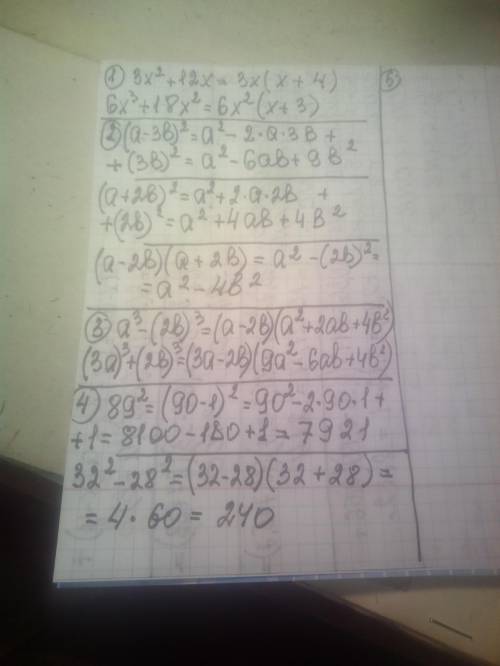 ① 3x² + 12x = 3x(x + 4)
6x³ + 18x² = 6x²(x + 3)
② (a - 3b)² = a² - 2·a·3b +
+ (3b)² = a² - 6ab + 9b²
(a + 2b)² = a² + 2·a·2b +
+ (2b)² = a² + 4ab + 4b²
(a - 2b)(a + 2b) = a² - (2b)² =
= a² - 4b²
③ a³ - (2b)³ = (a - 2b)(a² + 2ab + 4b²)
(3a)³ + (2b)³ = (3a - 2b)(9a² - 6ab + 4b²)
④ 89² = (90 - 1)² = 90² - 2·90·1 +
+ 1 = 8100 - 180 + 1 = 7921
32² - 28² = (32 - 28)(32 + 28) =
= 4·60 = 240
⑤